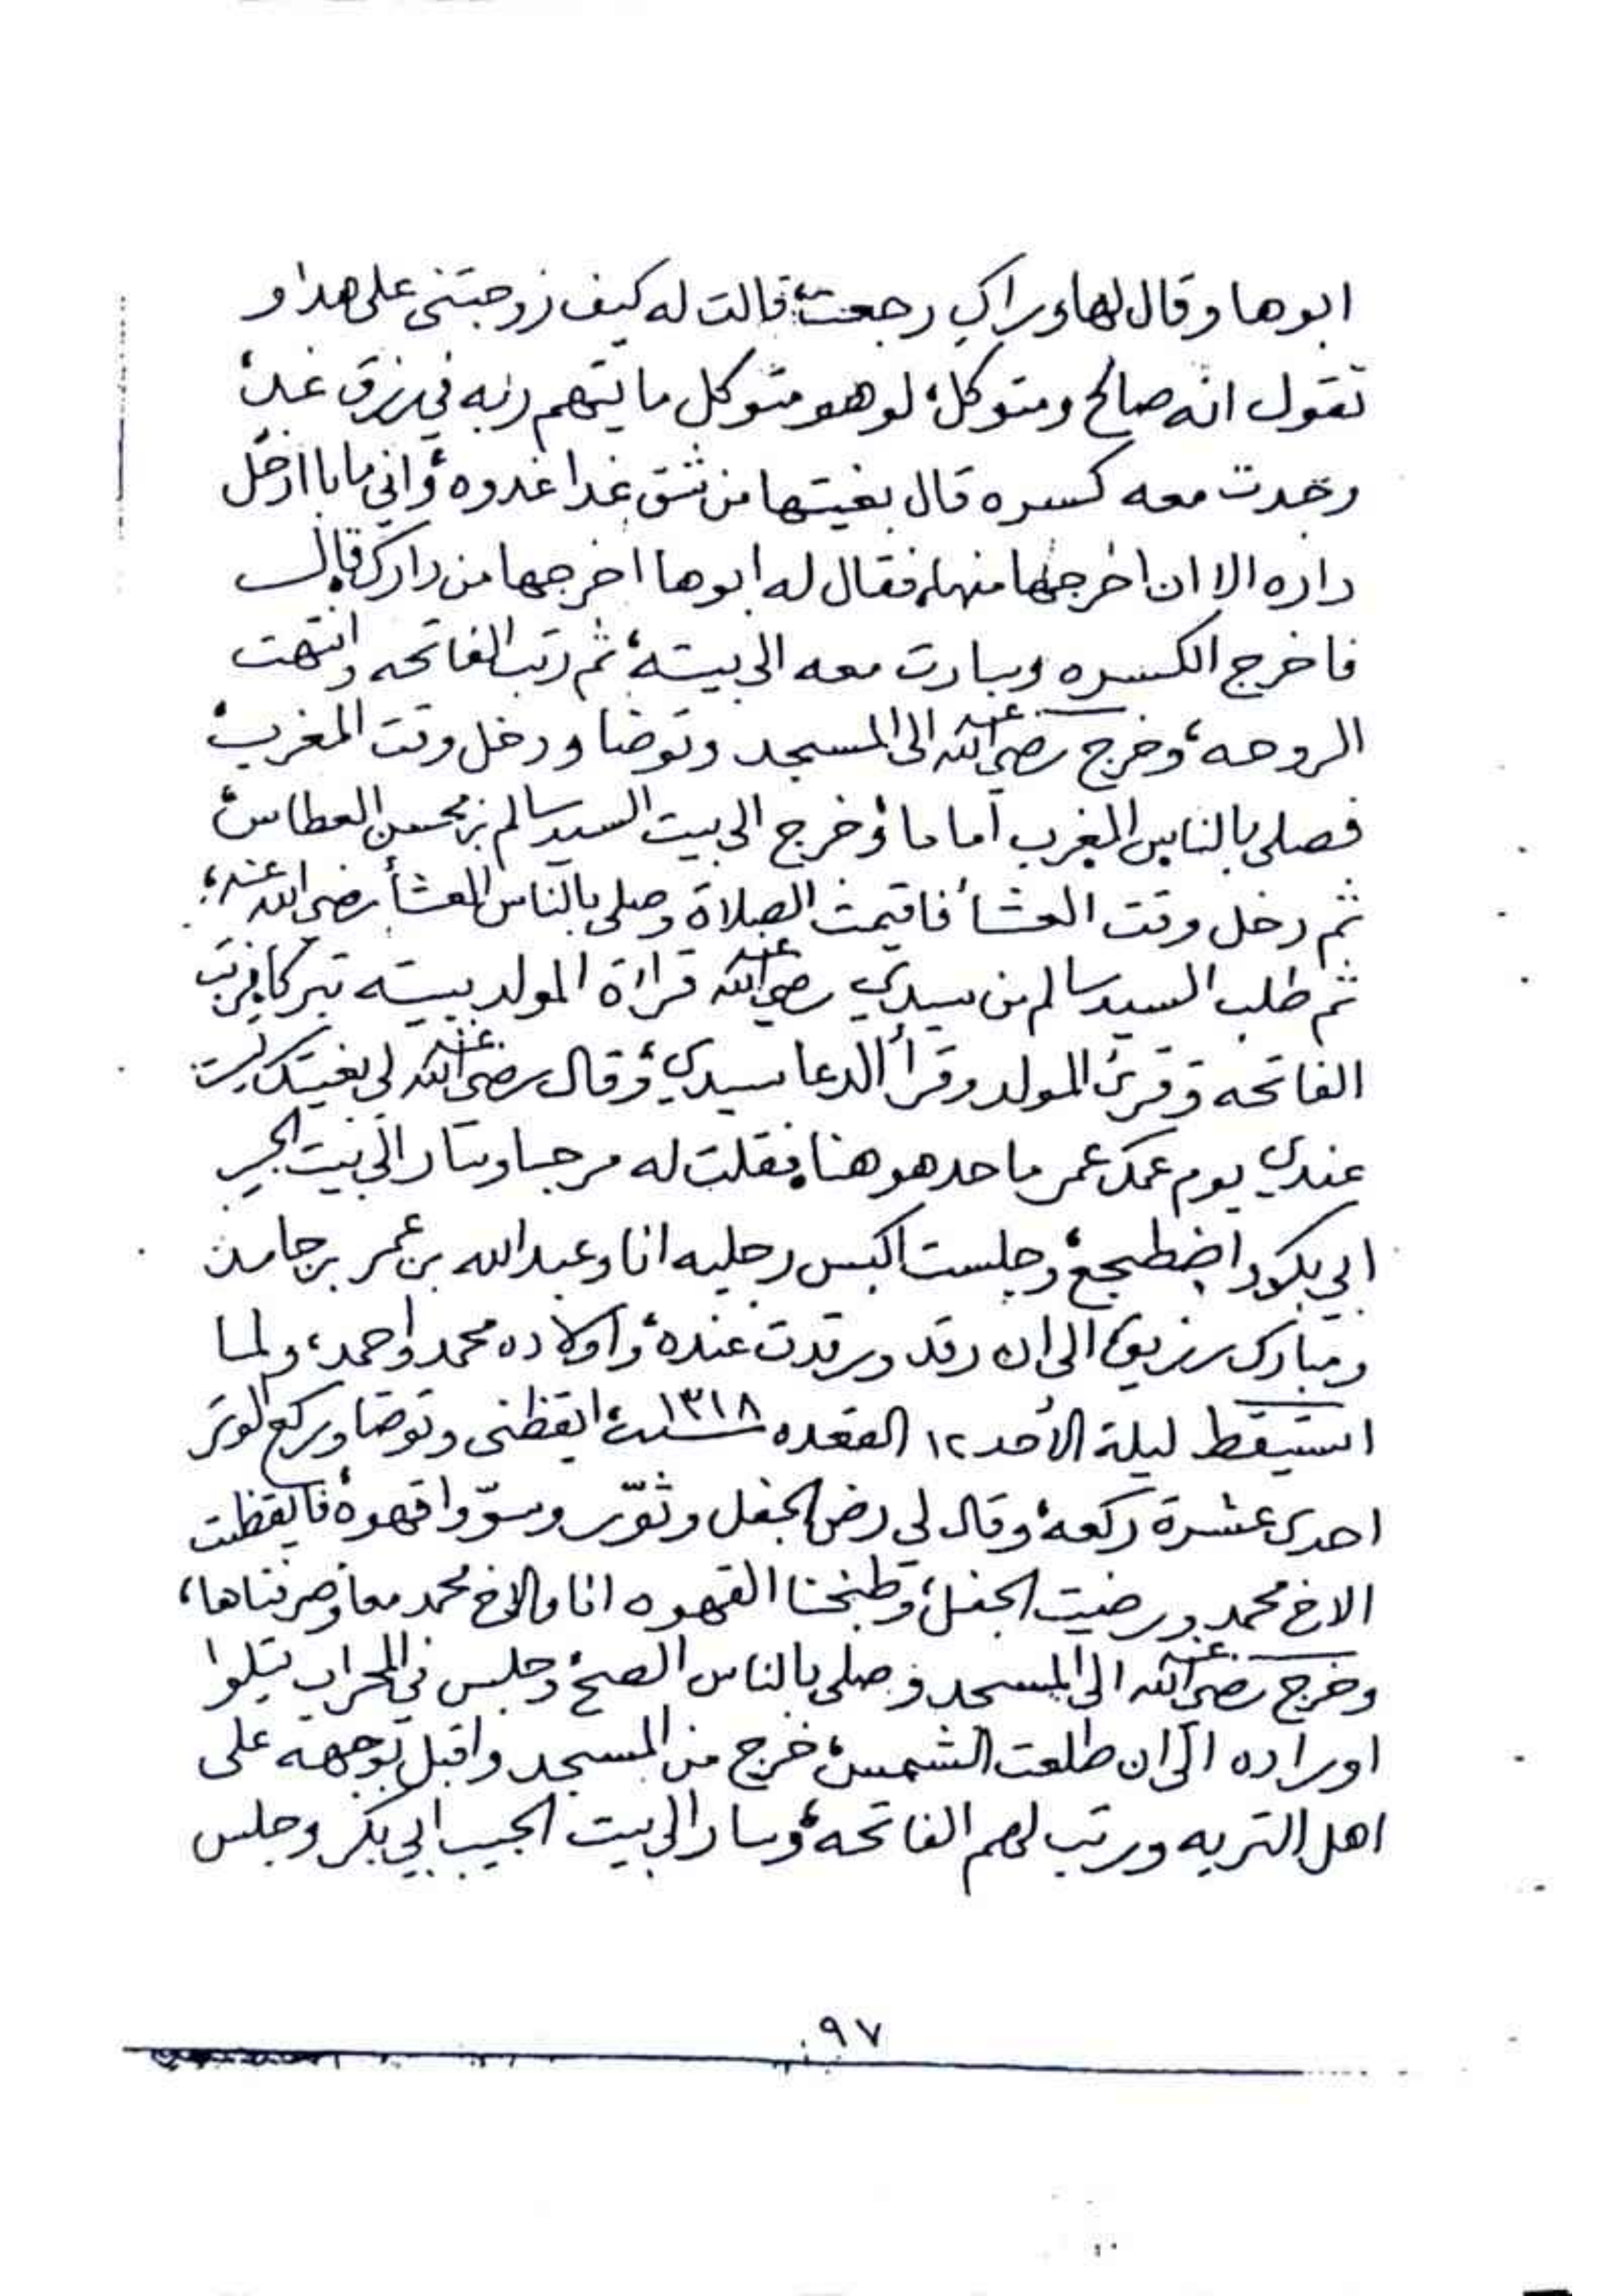 ابوها وقال لها وراكِ رجعت، قالت له كيف زوجتنى على هذا و
تقول انه صالح ومتوكل، لو هو متوكل ما يتهم ربه في رزق غد،
وجدت معه كسره قال بغيتها من شق غدا غدوه، واني ما با ادخل
داره الا ان اخرجها منها، فقال له ابوها اخرجها من دارك قال
فاخرج الكسره وسارت معه الى بيته، ثم رتب الفاتحه وانتهت
الروحه، وخرج رضي الله عنه الى المسجد وتوضا ودخل وقت المغرب،
فصلى بالناس المغرب اماما، وخرج الى بيت السيد سالم بن محسن العطاس،
ثم دخل وقت العشأ فاقيمت الصلاة وصلى بالناس العشأ رضي الله عنه،
ثم طلب السيد سالم من سيدي رضي الله عنه قراءة المولد ببيته تبركا فرتب
الفاتحه وقرئ المولد وقرأ الدعا سيدي، وقال رضي الله عنه لي بغيتك
عندي يوم عمك عمر ماحد هو هنا، فقلت له مرحبا وسار الى بيت الحبيب
ابي بكر واضطجع، وجلست اكبس رجليه انا وعبدالله بن عمر بن حامد
ومبارك رزيق، الى ان رقد ورقدت عنده، واولاده محمد واحمد، ولما
استيقظ ليلة الأحد ١٢ القعده سنة ١٣١٨، ايقظنى وتوضا وركع الوتر
احدى عشرة ركعه، وقال لي رض الجفل وثوّر وسوّوا قهوه، فايقظت
الاخ محمد ورضيت الجفل، وطبخنا القهوه انا والاخ محمد معا وصرفناها،
وخرج رضي الله عنه الى المسجد وصلى بالناس الصبح، وجلس في المحراب يتلوا
اوراده الى ان طلعت الشمس، خرج من المسجد واقبل بوجهه على
اهل التربه ورتب لهم الفاتحه، وسار الى بيت الحبيب ابي بكر وجلس
٩٧